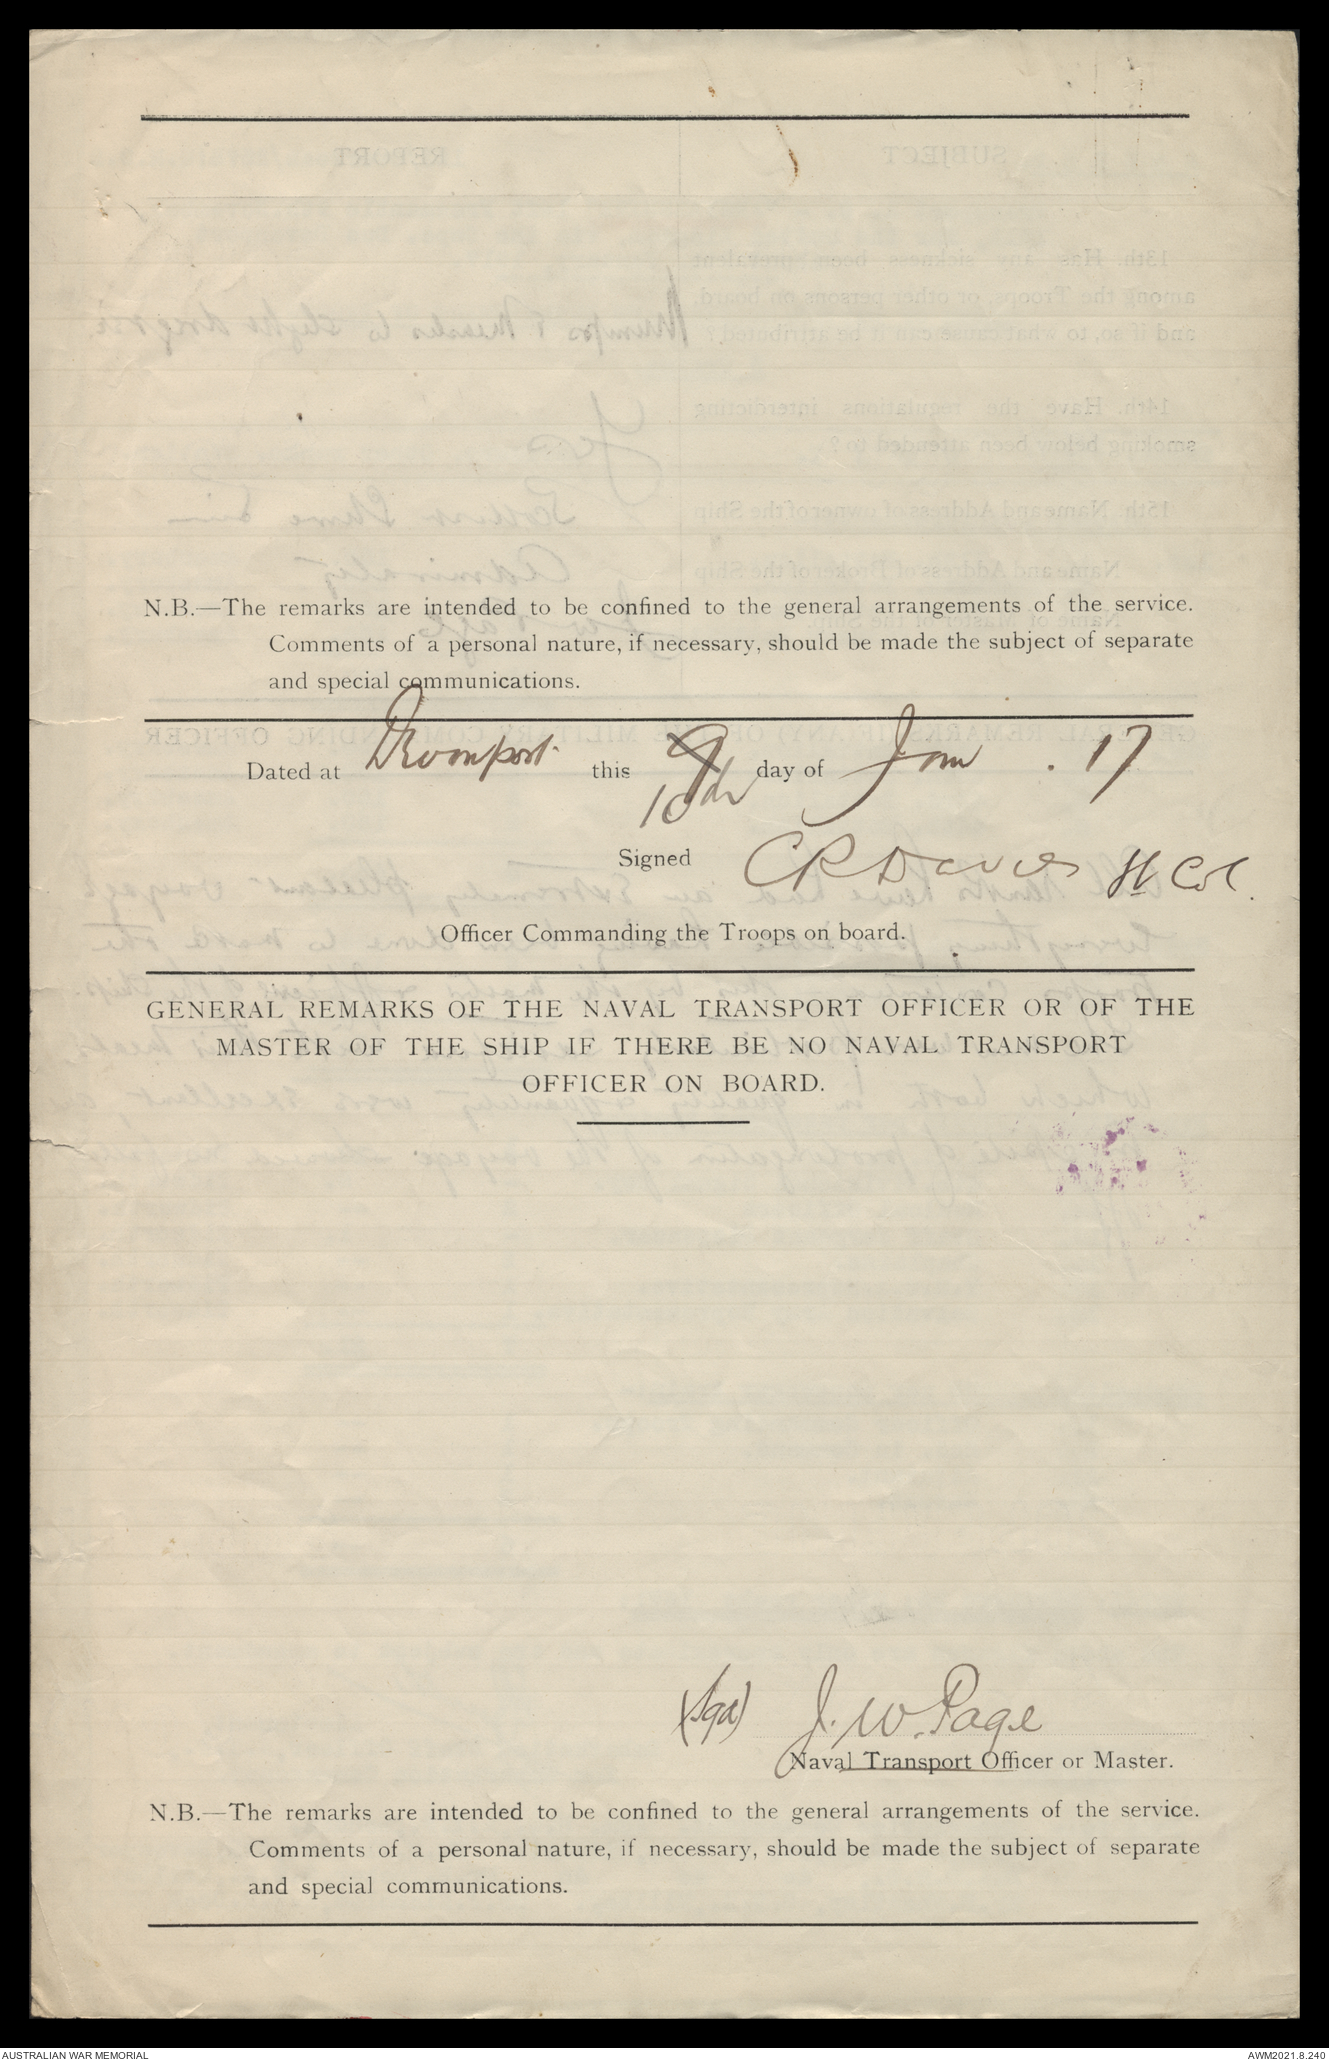 N.B.—The remarks are intended to be confined to the general arrangements of the service.
Comments of a personal nature, if necessary, should be made the subject of separate
and special communications.
Dated at Devonport this 9 10th day of Jan . 17
Signed C R Davies Lt Col.
Officer Commanding the Troops on board.
GENERAL REMARKS OF THE NAVAL TRANSPORT OFFICER OR OF THE
MASTER OF THE SHIP IF THERE BE NO NAVAL TRANSPORT
OFFICER ON BOARD.
(Sgd) J. W. Page
Naval Transport Officer or Master.
N.B.—The remarks are intended to be confined to the general arrangements of the service.
Comments of a personal nature, if necessary, should be made the subject of separate
and special communications.
AUSTRALIAN WAR MEMORIAL
AWM2021.8.240